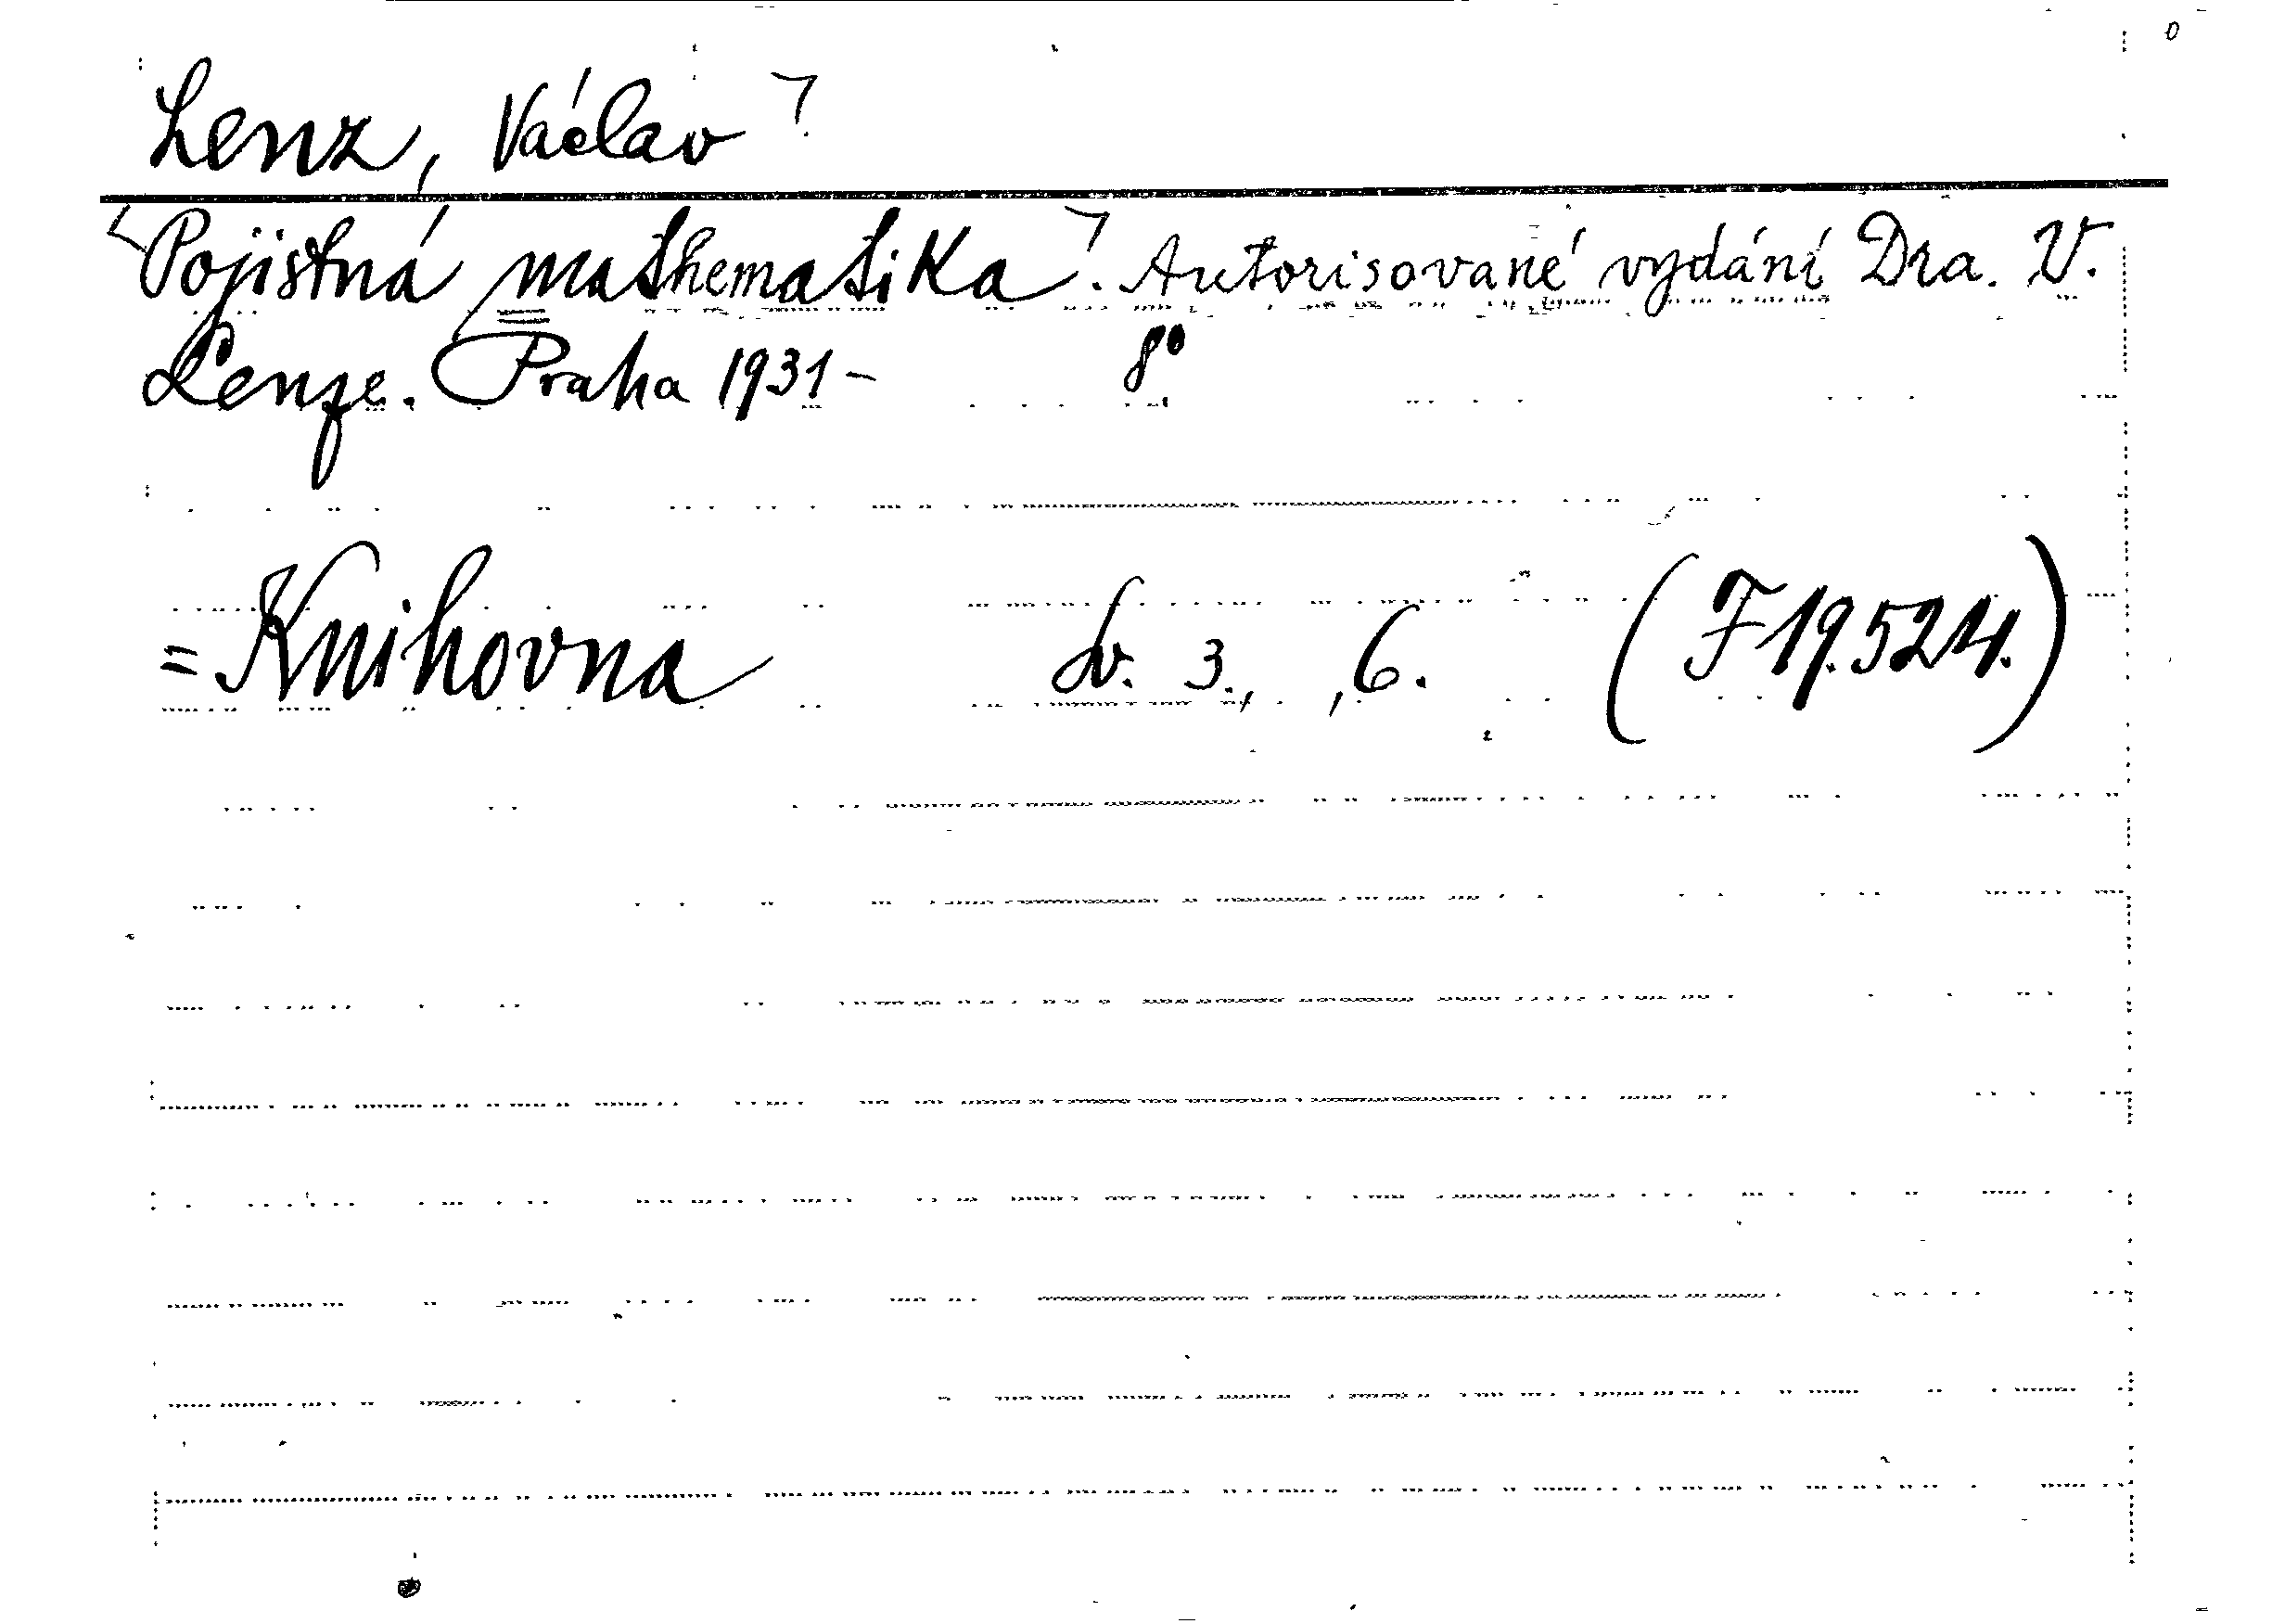 Lenz, Václav
Pojistná mathematika. Autorisované vydání Dra. V.
Lenze. Praha 1931- 8°
= Knihovna Sv. 3., ,6. (F 19.524.)